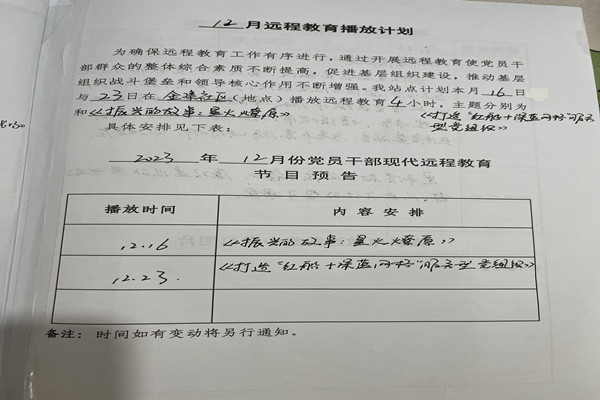 12月远程教育播放计划
为确保远程教育工作有序进行，通过开展远程教育使党员干
部群众的整体综合素质不断提高，促进基层组织建设，推动基层
组织战斗堡垒和领导核心作用不断增强。我站点计划本月16日
与23日在金港社区（地点）播放远程教育4小时，主题分别为
和《振兴的故事：星火燎原》 《打造“红船+深蓝网格”服务
型党组织》
具体安排见下表：
2023年12月份党员干部现代远程教育
节目预告
播放时间 内容安排
12.16 《振兴的故事：星火燎原》
12.23. 《打造“红船+深蓝网格”服务型党组织》
备注：时间如有变动将另行通知。